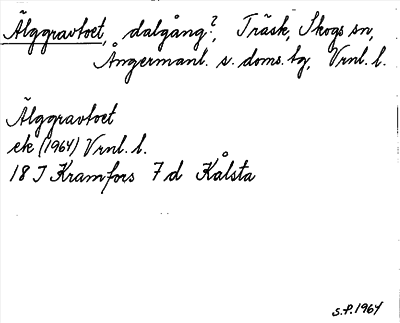 Älggravtoet, dalgång?, Träsk, Skogs sn,
Ångermanl. s. doms. tg, Vrnl. l.
Älggravtoet
ek (1964) Vrnl. l.
18 I Kramfors 7 d Kålsta
S.P. 1964